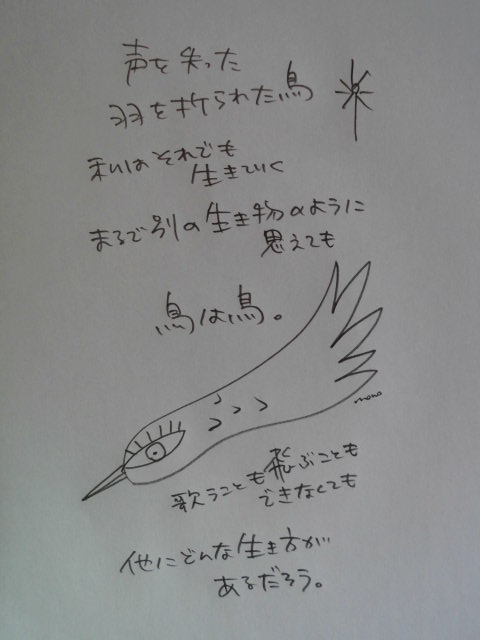 声を失った
羽を折られた鳥
私はそれでも
生きていく
まるで別の生き物のように
思えても
鳥は鳥。
mono
歌うことも飛ぶことも
できなくても
他にどんな生き方が
あるだろう。